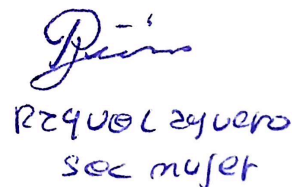 Raquel Aguero
Sec mujer